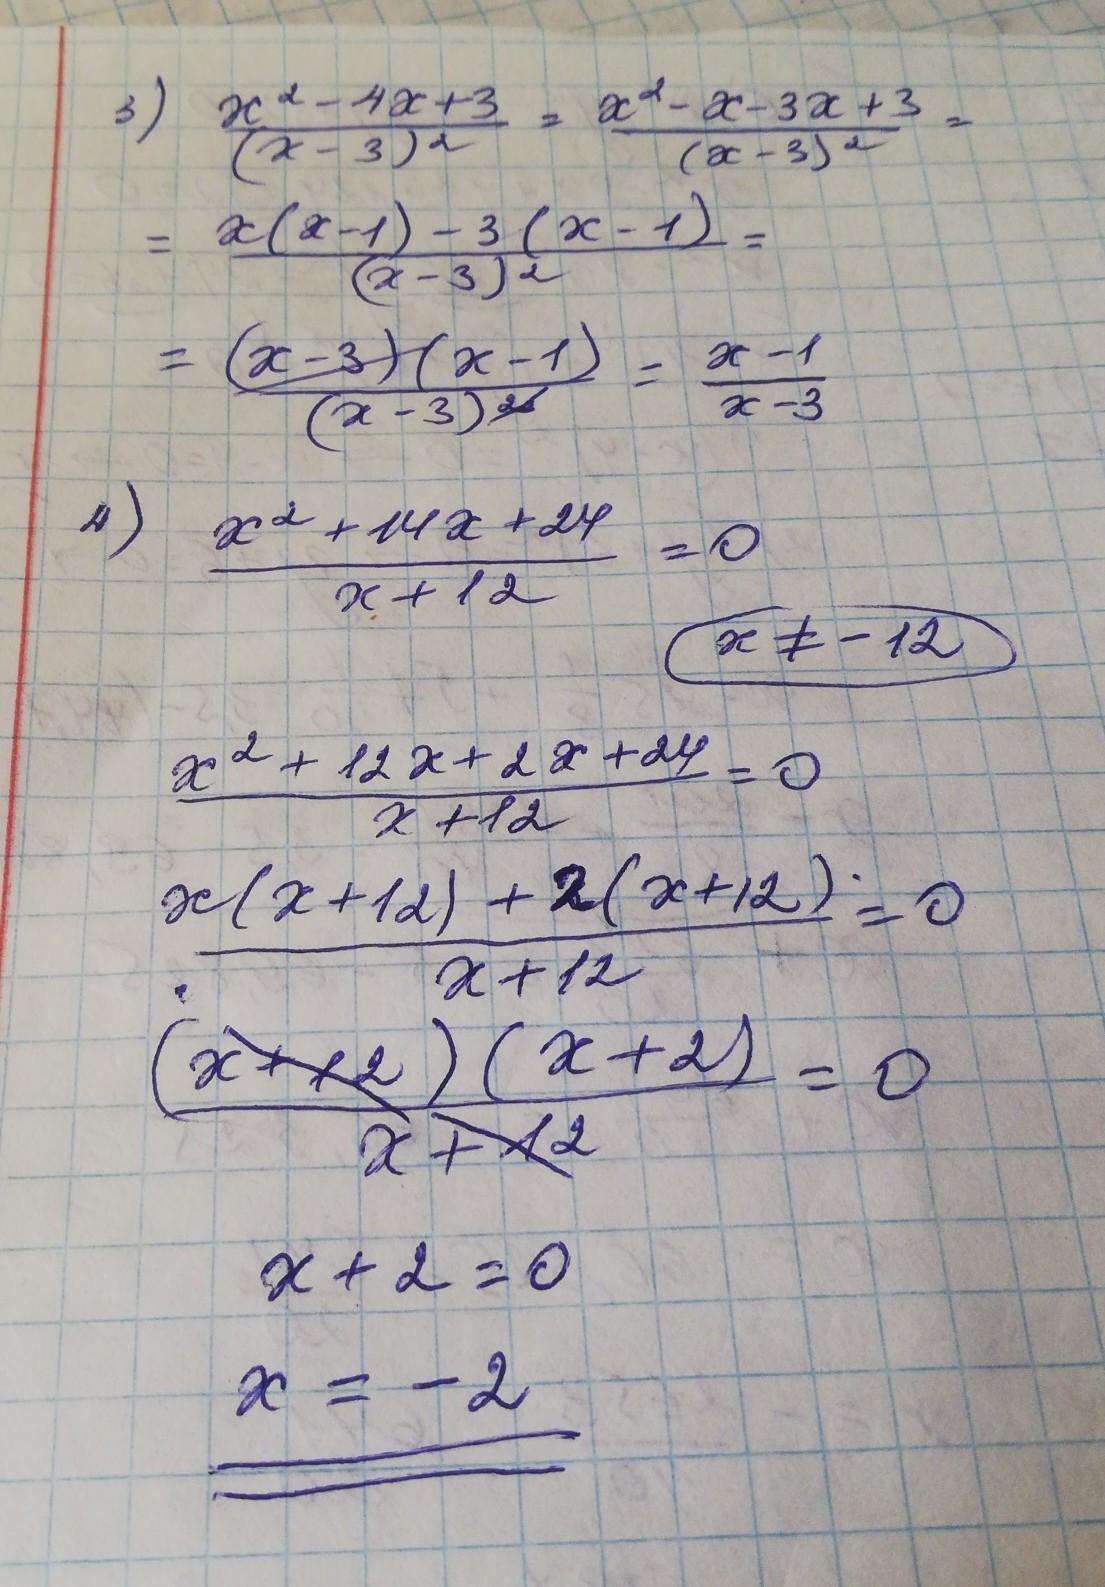 3) (x² - 4x + 3)/(x - 3)² = (x² - x - 3x + 3)/(x - 3)² =
= (x(x - 1) - 3(x - 1))/(x - 3)² =
= ((x - 3)(x - 1))/(x - 3)² = (x - 1)/(x - 3)
4) (x² + 14x + 24)/(x + 12) = 0
x ≠ -12
(x² + 12x + 2x + 24)/(x + 12) = 0
(x(x + 12) + 2(x + 12))/(x + 12) = 0
((x + 12)(x + 2))/(x + 12) = 0
x + 2 = 0
x = -2